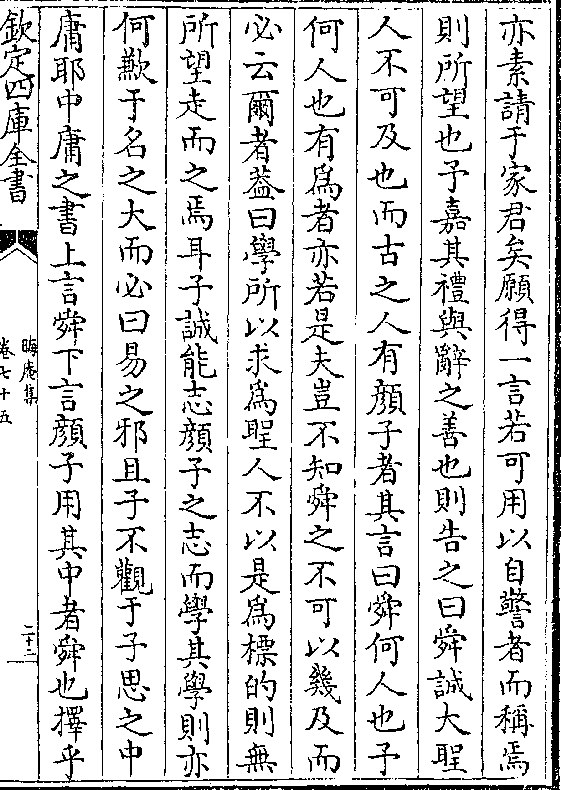 亦素請于家君矣願得一言若可用以自警者而稱焉
則所望也予嘉其禮與辭之善也則告之曰舜誠大聖
人不可及也而古之人有顔子者其言曰舜何人也予
何人也有爲者亦若是夫豈不知舜之不可以幾及而
必云爾者葢曰學所以求爲聖人不以是爲標的則無
所望走而之焉耳子誠能志顔子之志而學其學則亦
何歉于名之大而必曰易之邪且子不觀于子思之中
庸耶中庸之書上言舜下言顔子用其中者舜也擇乎
欽定四庫全書
晦庵集
卷七十五
二十二